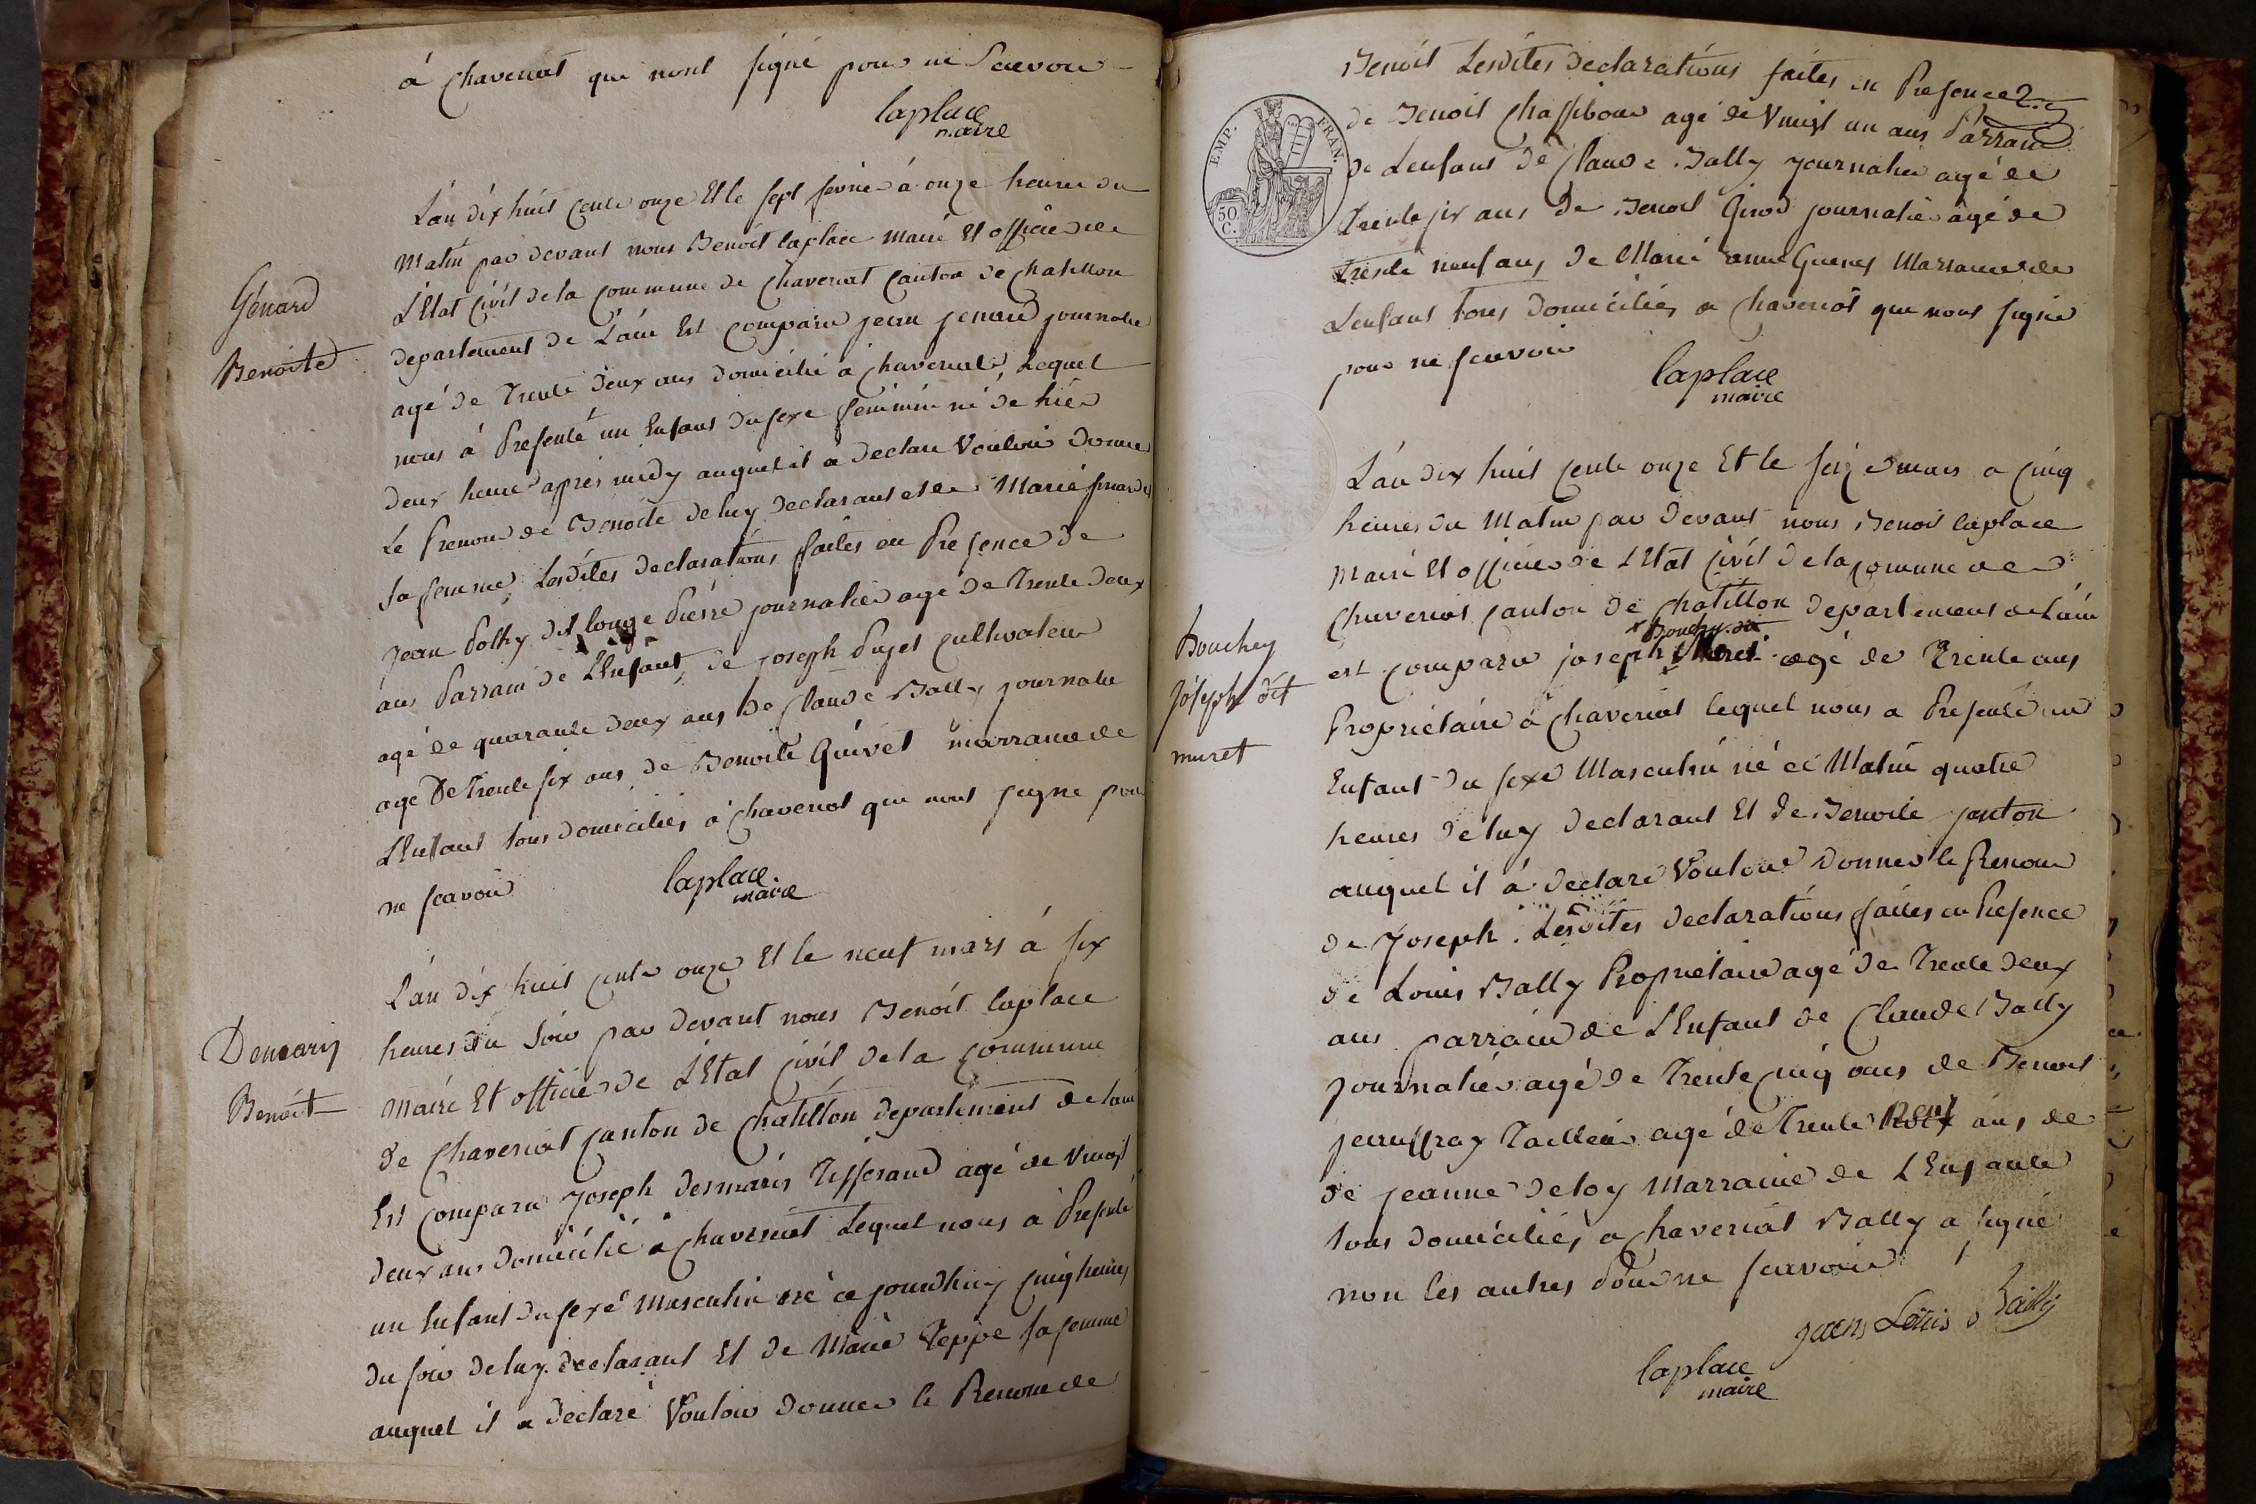 à Chaveriat qui n'ont signé pour ne scavoir
laplace
maire
Génard
Benoite
L'an dix huit cents onze Et le sept fevrier à onze heures du
Matin par devant nous Benoit laplace Maire Et officier de
L'Etat Civil de la Commune de Chaveriat Canton de Chatillon
departement de L'ain Est Comparu jean jenard journalier
agé de Trente deux ans domicilié à Chaveriat, Lequel
nous à Presenté un Enfant du sexe feminin né de hier
deux heure après midy auquel il a declaré Vouloir donner
Le Prenom de Benoite de luy declarant et de Marie
sa femme, Lesdites declarations faites en Presence de
jean Polhy dit longe Pierre journalier agé de Trente deux
ans Parrain de L'Enfant, de joseph Pujet Cultivateur
agé de quarante deux ans de Claude Bally journalier
agé De Trente six ans, de Benoite Quivet marraine de
L'Enfant tous domiciliés à Chaveriat qui n'ont signé pour
ne scavoir
laplace
maire
Demaris
Benoit
L'an dix huit cents onze Et le neuf mars à six
heures du soir par devant nous Benoit laplace
Maire Et officier de L'Etat Civil de la Commune
de Chaveriat Canton de Chatillon departement de l'ain
Est Comparu Joseph desmaris Tisserand agé de Vingt
deux ans domicilié à Chaveriat Lequel nous à Presenté
un Enfant du sexe Masculin né ce jourdhuy cinq heures
du soir de luy declarant Et de Marie Teppe sa femme
auquel il a declaré Vouloir donner le Prenom de
Benoit Lesdites declarations faites en Presence
de Benoit Chassibour agé de Vingt un ans Parrain
de L'enfant de Claude Bally journalier agé de
Trente six ans de Benoit Girod journalier agé de
trente neuf ans, de Marie anne Guenes Marraine de
L'enfant tous domiciliés a Chaveriat qui n'ont signé
pour ne scavoir
laplace
maire
EMP. FRAN.
50 C.
Bouchey
Joseph dit
muret
L'an dix huit cents onze Et le seize mars a cinq
heures du Matin par devant nous Benoit laplace
Maire Et officier de L'Etat Civil de la commune de
Chaveriat Canton de Chatillon departement de L'ain
Bouchy dit
est Comparu joseph Muret agé de Trente ans
Propriétaire à Chaveriat lequel nous a Presenté un
Enfant du sexe Masculin né ce Matin quatre
heures de luy declarant Et de Benoite janton
auquel il à declaré Vouloir donner le Prenom
de Joseph. Lesdites declarations faites en Presence
de Louis Bally Propriétaire agé de Trente deux
ans parrain de L'Enfant de Claude Bally
journalier agé de Trente cinq ans de Benoit
Tailleur agé de Trente neuf ans de
de jeanne deloy Marraine de L'Enfant
tous domiciliés a Chaveriat Bally a signé
non les autres pour ne scavoir
Louis Bailly
laplace
maire